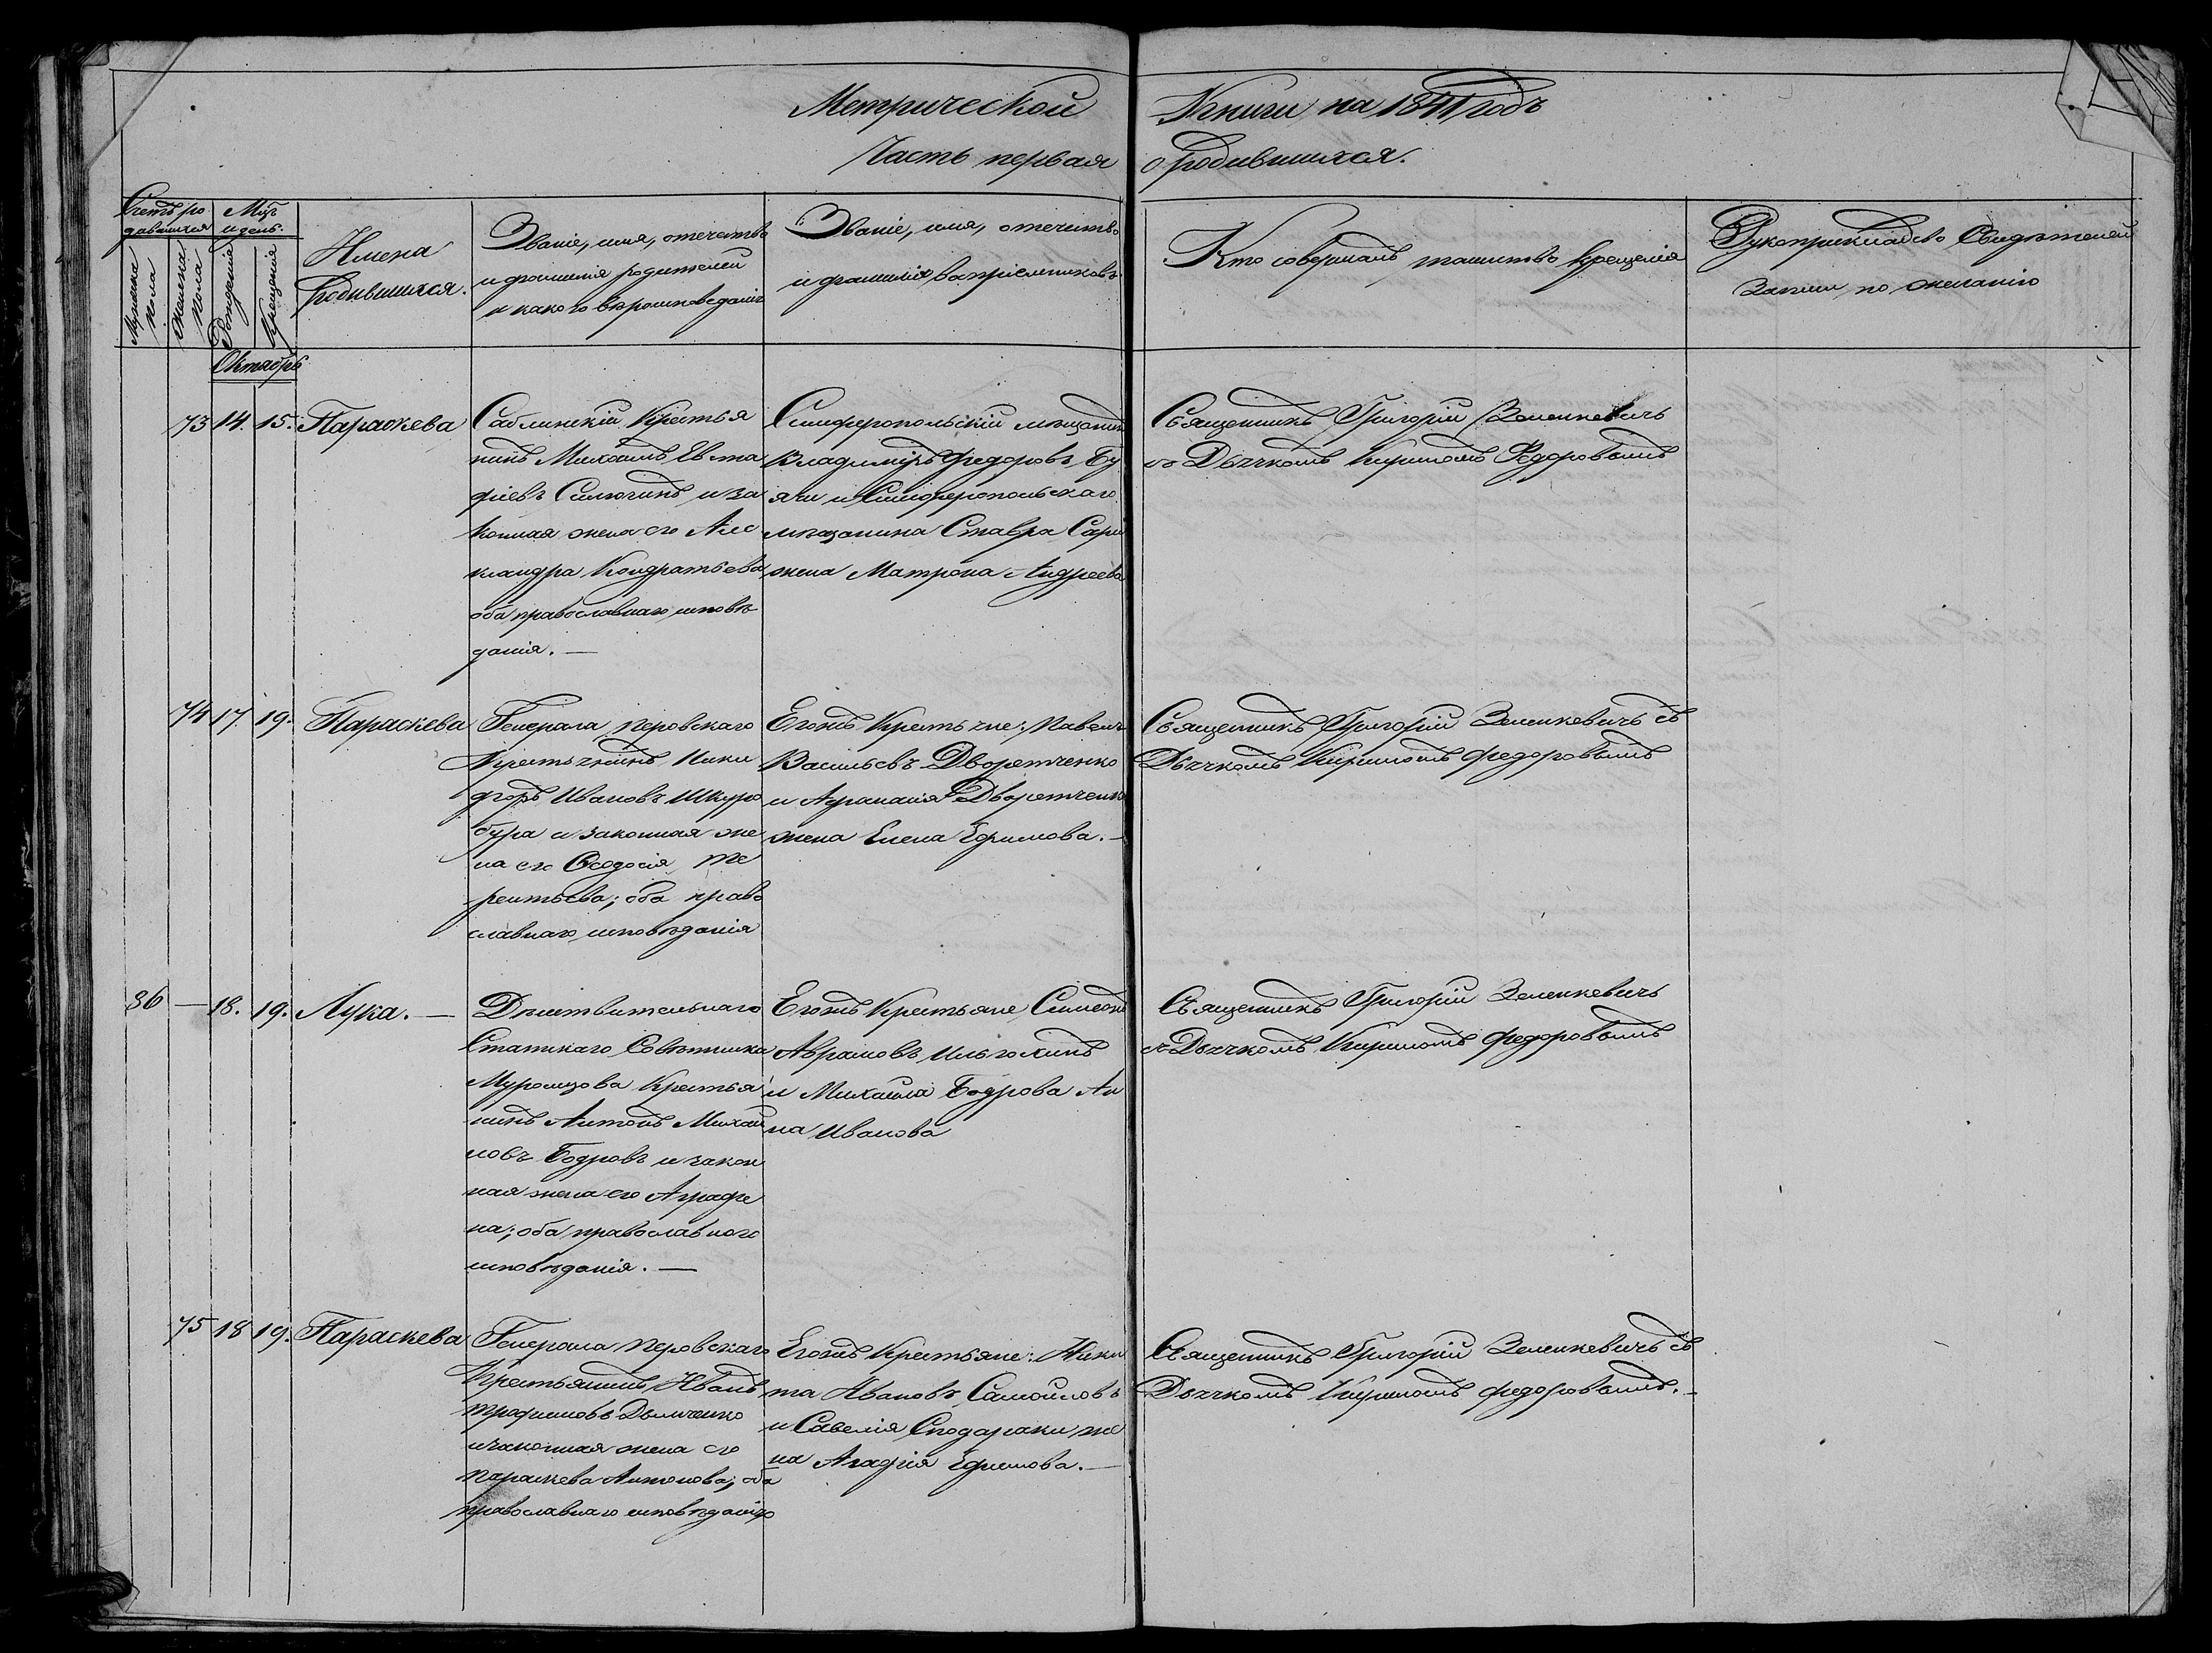 Метрической Книги на 1841 годъ
Часть первая о родившихся.
Счетъ родившихся
Мужеска пола
Женска пола
Мцъ и день.
Рожденія
Крещенія
Имена
родившихся.
Званіе, имя, отечество
и фамилія родителей
и какого вѣроисповеданія
Званіе, имя, отечество
и фамилія воспріемниковъ
Кто совершалъ таинство крещенія
Рукоприкладство Свидѣтелей
записи по желанію
Октябрь
73 14. 15. Параскева
Саблинскій Крестья
нинъ Михаилъ Евста
фіевъ Силюгинъ и за
конная жена его Алек
сандра Кондратьева
оба православнаго исповѣ
данія. —
Симферопольскій мѣщанин
Владимиръ Федоровъ Бу
ячи и Симферопольскаго
мѣщанина Ставра Сари
жена Матрона Андреева
Священникъ Григорій Зеленкевичъ
съ Дьячкомъ Кириломъ Федоровымъ
74 17. 19. Параскева
Генерала Перовскаго
Крестьянинъ Ники
форъ Ивановъ Шкуро
бура и законная же
на его Феодосія Те
рентьева; оба право
славнаго исповѣданія
Егожъ Крестьяне: Павелъ
Васильевъ Дворетченко
и Афанасія Дворетченко
жена Елена Ефимова. —
Священникъ Григорій Зеленкевичъ съ
Дьячкомъ Кириломъ Федоровымъ
36 — 18. 19. Лука. —
Дѣйствительнаго
Статскаго Совѣтника
Муромцова Крестья
нинъ Антонъ Михаи
ловъ Бодровъ и закон
ная жена его Аграфе
на; оба православного
исповѣданія. —
Егожъ Крестьяне Симеонъ
Аврамовъ Ильюхинъ
и Михаила Бодрова Ан
на Иванова
Священникъ Григорій Зеленкевичъ
съ Дьячкомъ Кириломъ Федоровымъ
75 18 19. Параскева
Генерала Перовскаго
Крестьянинъ Иванъ
Трофимовъ Дымченко
и законная жена его
Параскева Антонова; оба
православнаго исповѣданія
Егожъ Крестьяне: Ники
та Ивановъ Самойловъ
и Савелія Сподараки же
на Агафія Ефимова. —
Священникъ Григорій Зеленкевичъ съ
Дьячкомъ Кириломъ Федоровымъ. —